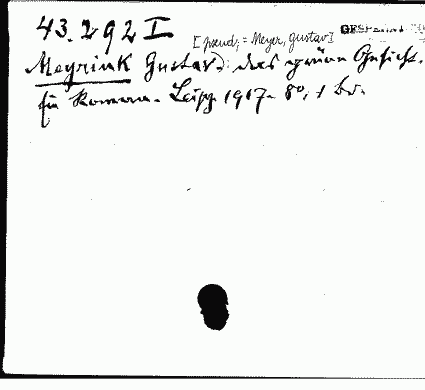 43.292 I
[pseud. = Meyer, Gustav] GESPERRT
Meyrink Gustav: das grüne Gesicht.
Ein Roman. Leipz. 1917. 8°, 1 Bd.